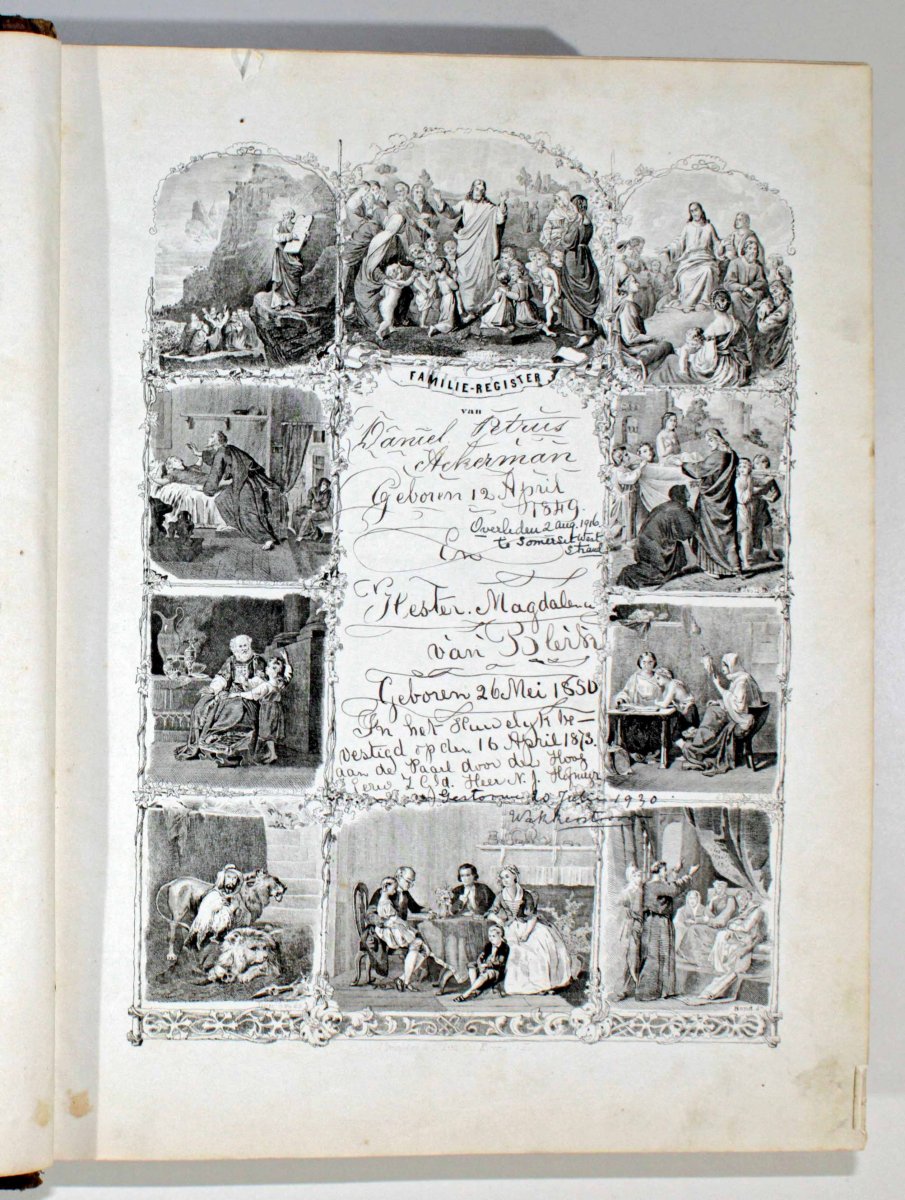 FAMILIE-REGISTER
van
Daniel Petrus
Ackerman
Geboren 12 April
1849.
Overleden 2 Aug. 1916
te Somerset West
Strand
En
Hester Magdalena
van Blerk
Geboren 26 Mei 1850
In het Huwelyk be-
vestigd op den 16 April 1873.
aan de Paarl door den Hoog
Eerw. Z. G. d. Heer N. J. Hofmeyr
Gestorven 20 Julie 1930